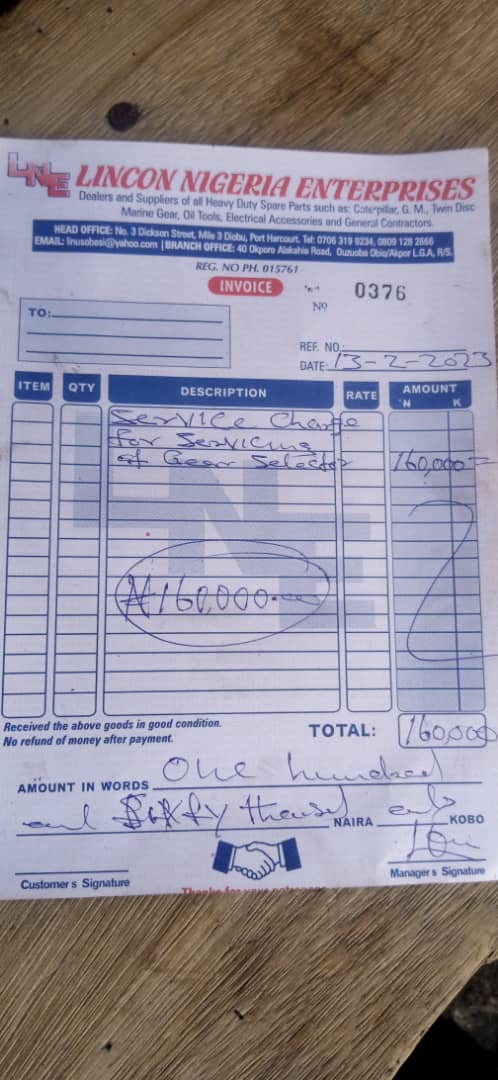 LNE LINCON NIGERIA ENTERPRISES
Dealers and Suppliers of all Heavy Duty Spare Parts such as: Caterpillar, G. M., Twin Disc
Marine Gear, Oil Tools, Electrical Accessories and General Contractors
HEAD OFFICE: No. 3 Dickson Street, Mile 3 Diobu, Port Harcourt. Tel: 0706 319 9234, 0809 128 2666
EMAIL: linusobasi@yahoo.com | BRANCH OFFICE: 40 Okporo Alakahia Road, Ouzuoba Obio/Akpor L.G.A, R/S.
REG. NO PH. 015761
INVOICE
No 0376
TO:
REF. NO.
DATE: 13-2-2023
ITEM QTY DESCRIPTION RATE AMOUNT
N K
Service Charge
for Servicing
of Gear Selector 160,000=
LNE
₦160,000.00
Received the above goods in good condition.
No refund of money after payment.
TOTAL: 160,000
AMOUNT IN WORDS One hundred
and Sixty NAIRA KOBO
Customer s Signature
Manager s Signature